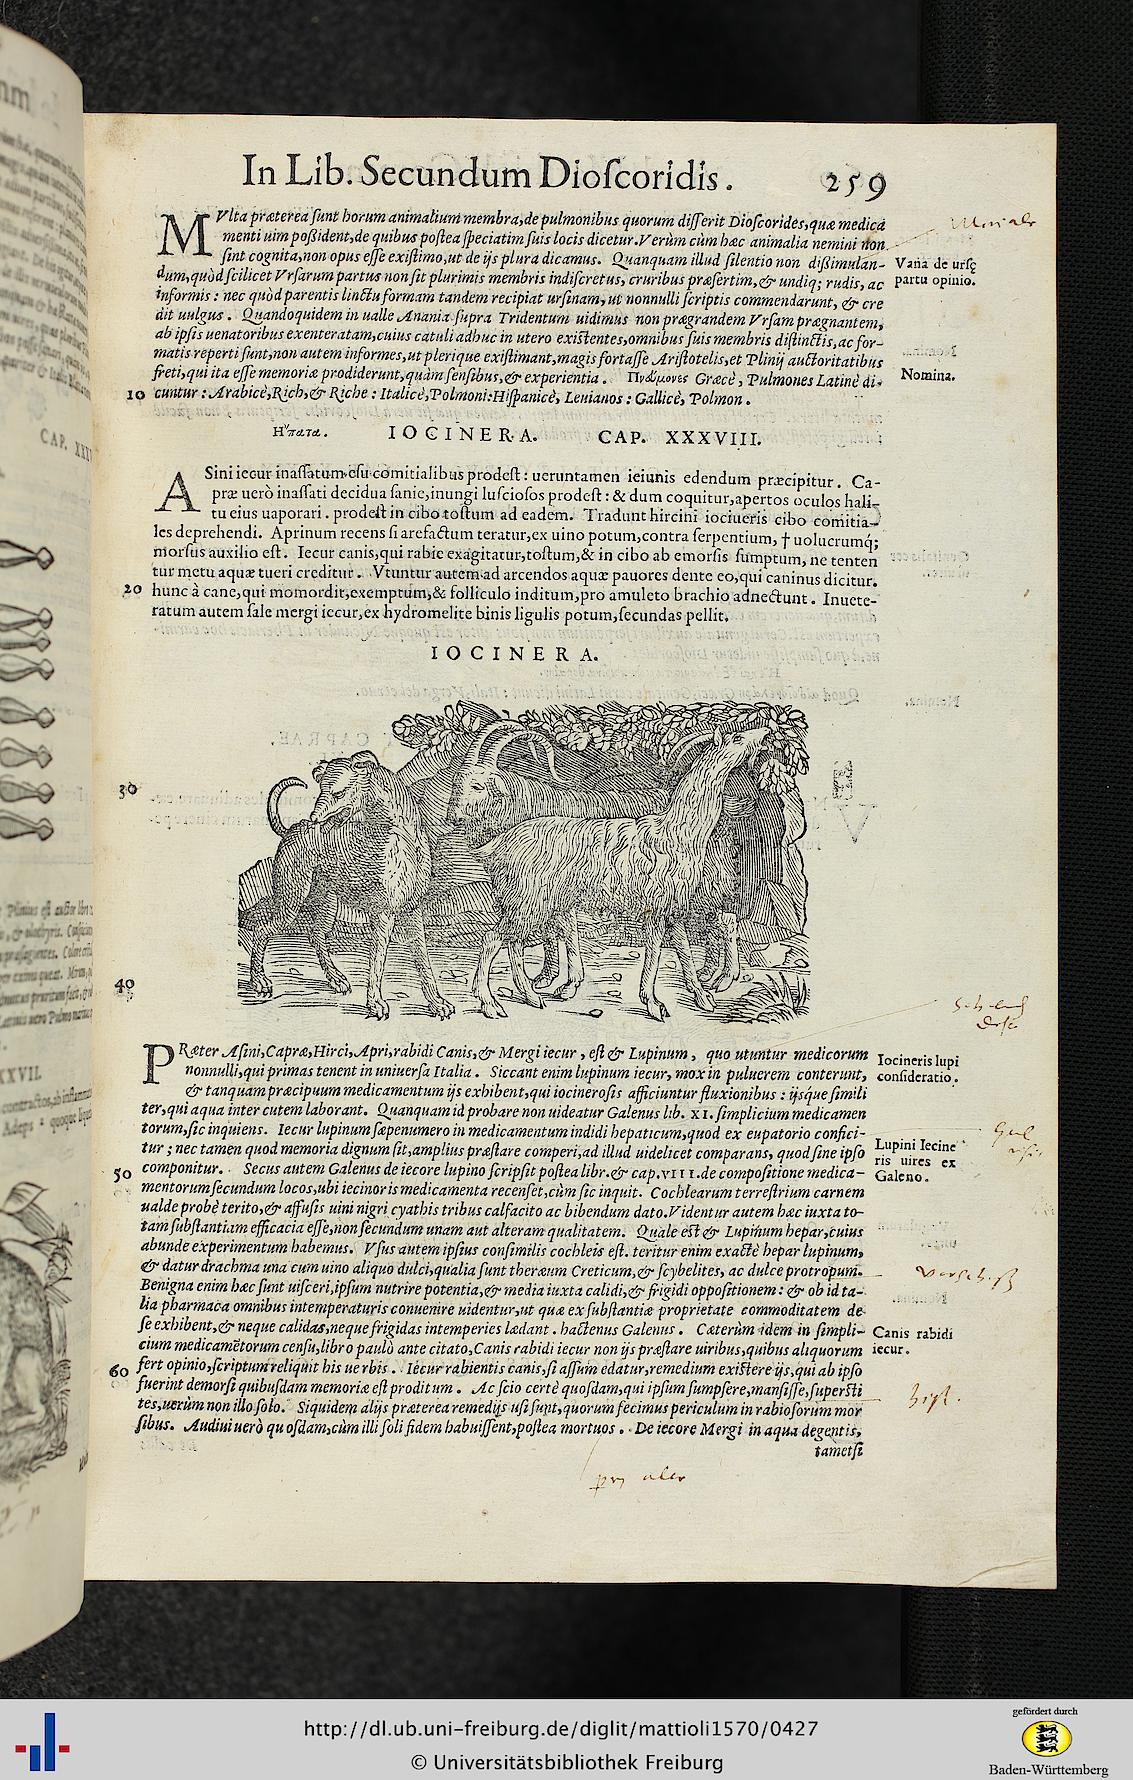 In Lib. Secundum Dioſcoridis. 259
MVlta præterea ſunt horum animalium membra, de pulmonibus quorum diſſerit Dioſcorides, quæ medica
menti uim poßident, de quibus poſtea ſpeciatim ſuis locis dicetur. Verùm cùm hæc animalia nemini non
ſint cognita, non opus eſſe exiſtimo, ut de ijs plura dicamus. Quanquam illud ſilentio non dißimulan-
dum, quòd ſcilicet Vrſarum partus non ſit plurimis membris indiſcretus, cruribus præſertim, & undiq; rudis, ac
informis: nec quòd parentis linctu formam tandem recipiat urſinam, ut nonnulli ſcriptis commendarunt, & cre
dit uulgus. Quandoquidem in ualle Anania ſupra Tridentum uidimus non prægrandem Vrſam prægnantem,
ab ipſis uenatoribus exenteratam, cuius catuli adhuc in utero exiſtentes, omnibus ſuis membris diſtinctis, ac for-
matis reperti ſunt, non autem informes, ut plerique exiſtimant, magis fortaſſe Ariſtotelis, et Plinij auctoritatibus
freti, qui ita eſſe memoriæ prodiderunt, quàm ſenſibus, & experientia. Πνεύμονες Græcè, Pulmones Latinè di-
10 cuntur: Arabicè, Rich, & Riche: Italicè, Polmoni: Hiſpanicè, Leuianos: Gallicè, Polmon.
Vana de urſę
partu opinio.
Nomina.
Η῞πατα. IOCINERA. CAP. XXXVIII.
ASini iecur inaſſatum eſu comitialibus prodeſt: ueruntamen ieiunis edendum præcipitur. Ca-
præ uerò inaſſati decidua ſanie, inungi luſcioſos prodeſt: & dum coquitur, apertos oculos hali-
tu eius uaporari. prodeſt in cibo toſtum ad eadem. Tradunt hircini iocineris cibo comitia-
les deprehendi. Aprinum recens ſi arefactum teratur, ex uino potum, contra ſerpentium, † uolucrumq;
morſus auxilio eſt. Iecur canis, qui rabie exagitatur, toſtum, & in cibo ab emorſis ſumptum, ne tenten
tur metu aquæ tueri creditur. Vtuntur autem ad arcendos aquæ pauores dente eo, qui caninus dicitur.
20 hunc à cane, qui momordit, exemptum, & folliculo inditum, pro amuleto brachio adnectunt. Inuete-
ratum autem ſale mergi iecur, ex hydromelite binis ligulis potum, ſecundas pellit.
IOCINERA.
30
40
PRæter Aſini, Capræ, Hirci, Apri, rabidi Canis, & Mergi iecur, eſt & Lupinum, quo utuntur medicorum
nonnulli, qui primas tenent in uniuerſa Italia. Siccant enim lupinum iecur, mox in puluerem conterunt,
& tanquam præcipuum medicamentum ijs exhibent, qui iocineroſis afficiuntur fluxionibus: ijsque ſimili
ter, qui aqua inter cutem laborant. Quanquam id probare non uideatur Galenus lib. XI. ſimplicium medicamen
torum, ſic inquiens. Iecur lupinum ſæpenumero in medicamentum indidi hepaticum, quod ex eupatorio confici-
tur; nec tamen quod memoria dignum ſit, amplius præſtare comperi, ad illud uidelicet comparans, quod ſine ipſo
50 componitur. Secus autem Galenus de iecore lupino ſcripſit poſtea libr. & cap. VIII. de compoſitione medica-
mentorum ſecundum locos, ubi iecinoris medicamenta recenſet, cùm ſic inquit. Cochlearum terreſtrium carnem
ualde probè terito, & affuſis uini nigri cyathis tribus calfacito ac bibendum dato. Videntur autem hæc iuxta to-
tam ſubſtantiam efficacia eſſe, non ſecundum unam aut alteram qualitatem. Quale eſt & Lupinum hepar, cuius
abunde experimentum habemus. Vſus autem ipſius conſimilis cochleis eſt. teritur enim exactè hepar lupinum,
& datur drachma una cum uino aliquo dulci, qualia ſunt theræum Creticum, & ſcybelites, ac dulce protropum.
Benigna enim hæc ſunt uiſceri, ipſum nutrire potentia, & media iuxta calidi, & frigidi oppoſitionem: & ob id ta-
lia pharmaca omnibus intemperaturis conuenire uidentur, ut quæ ex ſubſtantiæ proprietate commoditatem de
ſe exhibent, & neque calidas, neque frigidas intemperies lædant. hactenus Galenus. Cæterùm idem in ſimpli-
cium medicamētorum cenſu, libro paulò ante citato, Canis rabidi iecur non ijs præſtare uiribus, quibus aliquorum
60 fert opinio, ſcriptum reliquit his uerbis. Iecur rabientis canis, ſi aſſum edatur, remedium exiſtere ijs, qui ab ipſo
fuerint demorſi quibuſdam memoriæ eſt proditum. Ac ſcio certè quoſdam, qui ipſum ſumpſere, manſiſſe, ſuperſti
tes, uerùm non illo ſolo. Siquidem alijs præterea remedijs uſi ſunt, quorum fecimus periculum in rabioſorum mor
ſibus. Audiui uerò quoſdam, cùm illi ſoli fidem habuiſſent, poſtea mortuos. De iecore Mergi in aqua degentis,
tametſi
Iocineris lupi
conſideratio.
Lupini Iecine
ris uires ex
Galeno.
Canis rabidi
iecur.
http://dl.ub.uni-freiburg.de/diglit/mattioli1570/0427
© Universitätsbibliothek Freiburg
gefördert durch
Baden-Württemberg